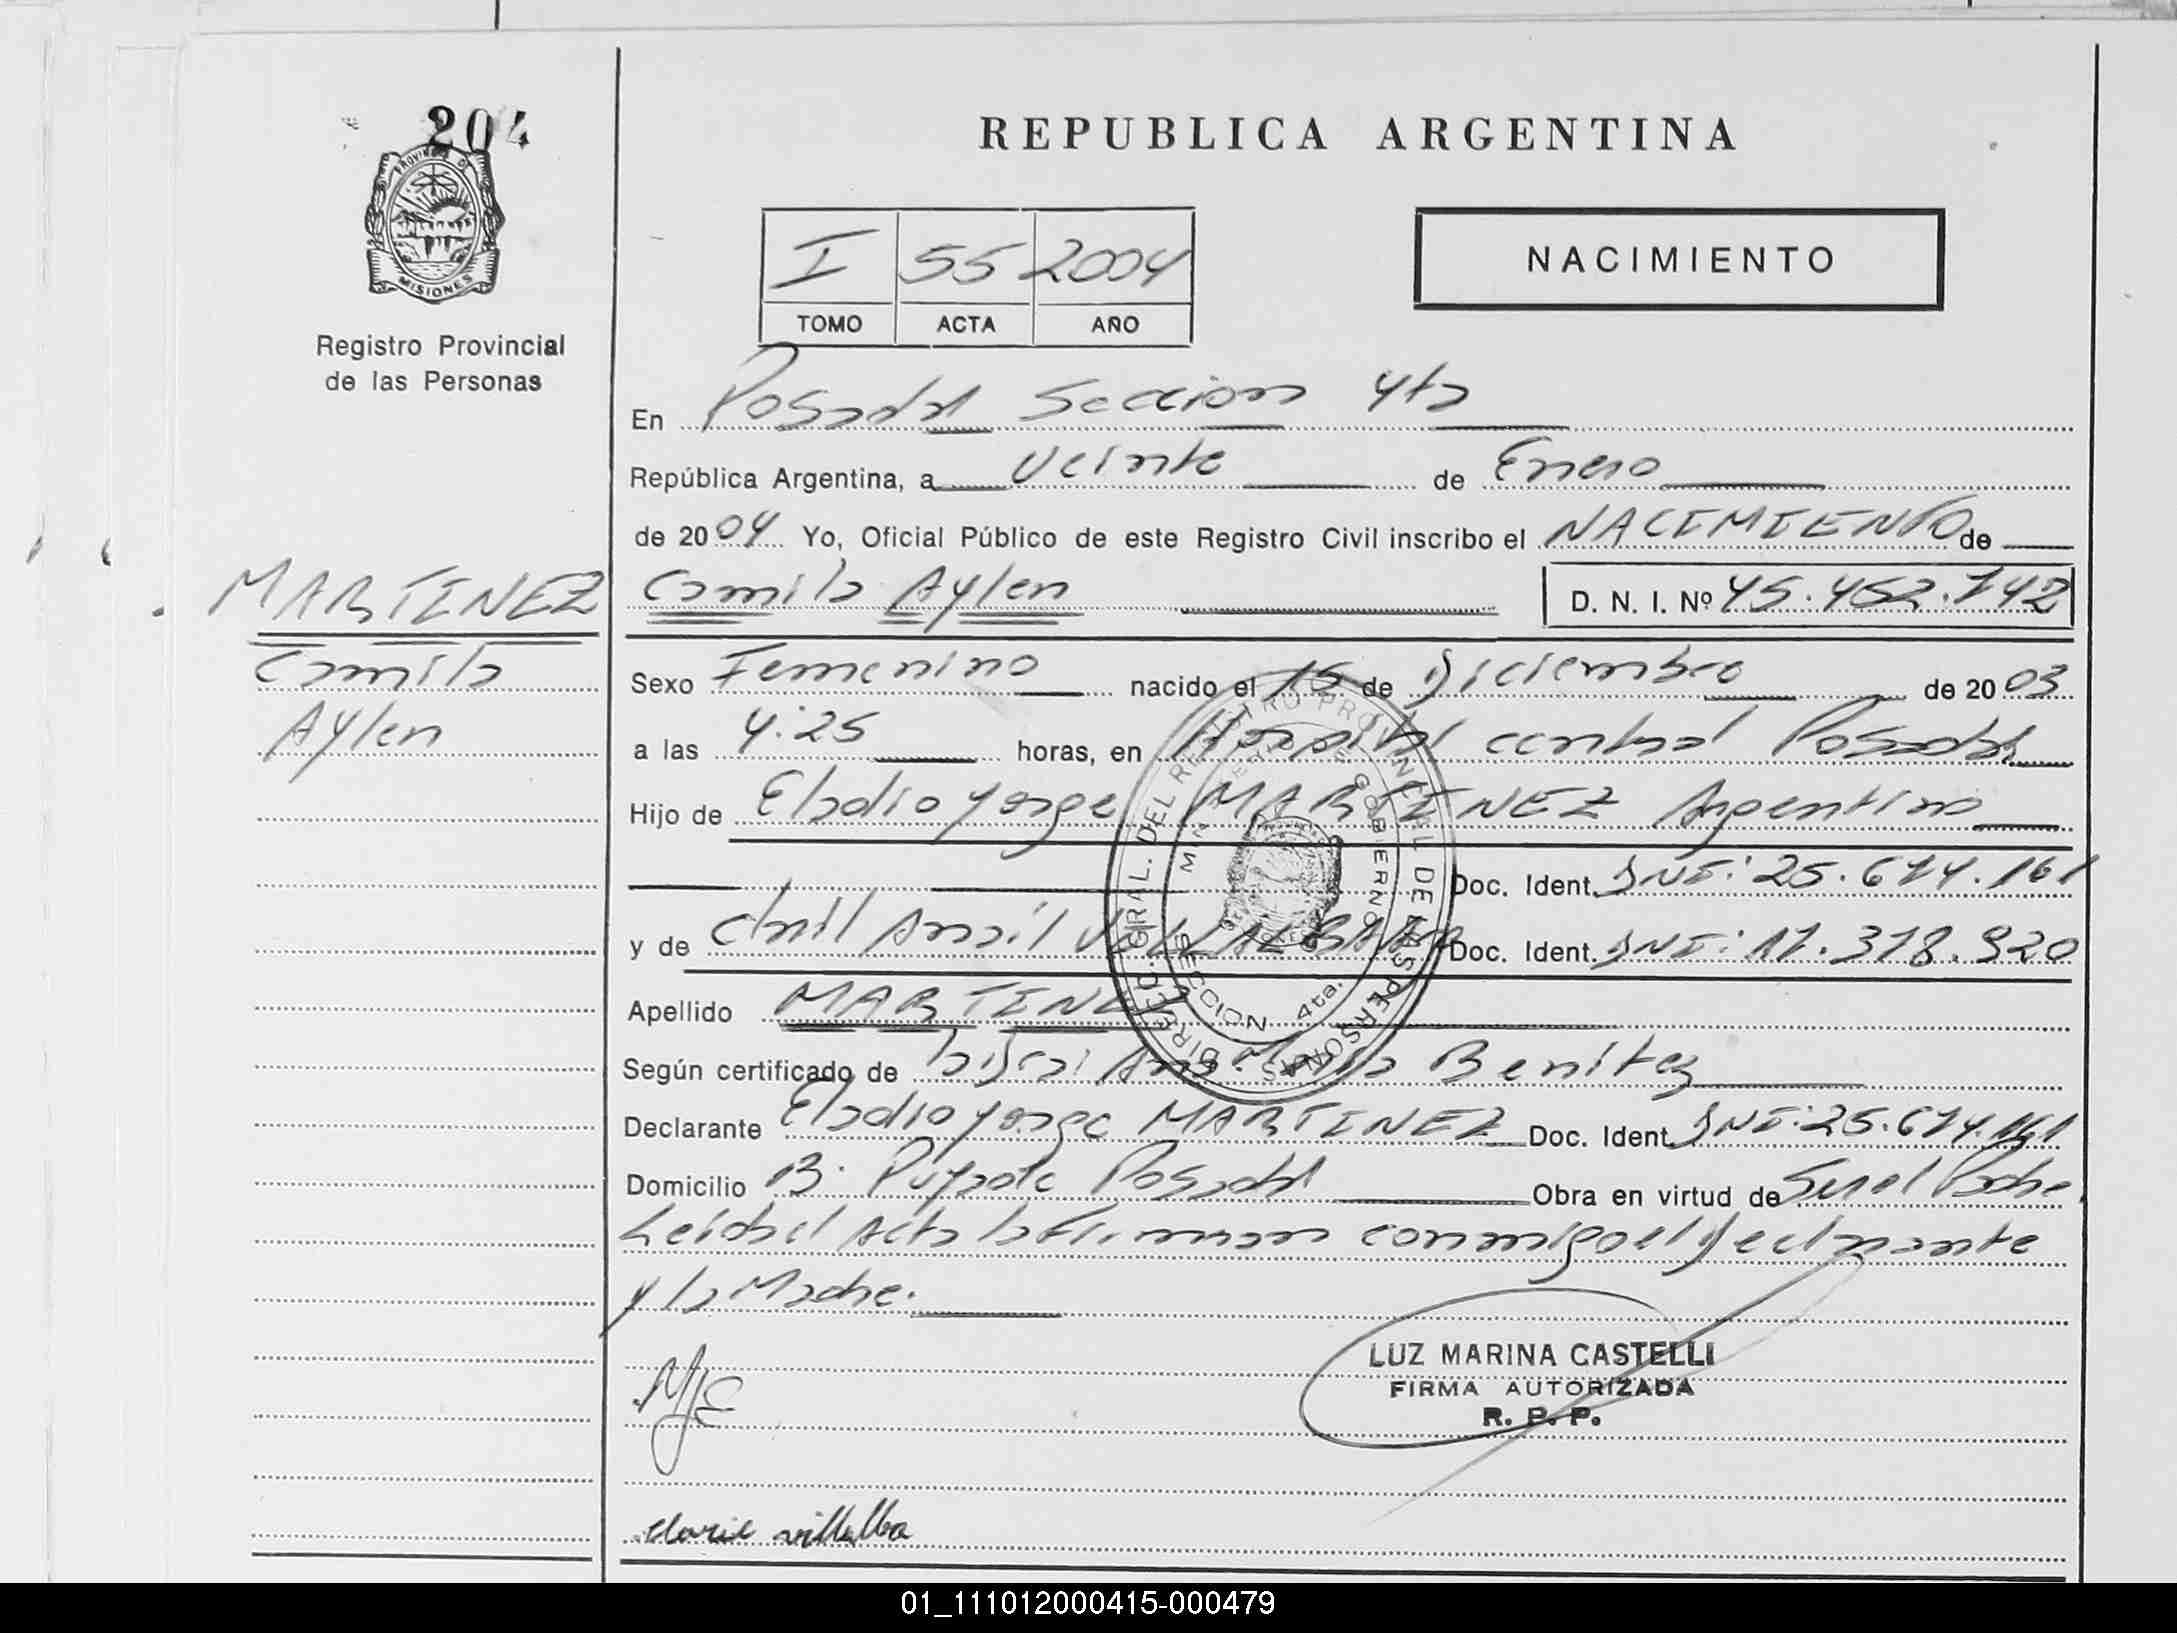 204
PROVINCIA DE
MISIONES
Registro Provincial
de las Personas
REPUBLICA ARGENTINA
I 55 2004
TOMO ACTA AÑO
NACIMIENTO
En Posadas Seccion 4ta
República Argentina, a veinte de Enero
de 2004 Yo, Oficial Público de este Registro Civil inscribo el NACIMIENTO de
MARTINEZ Camila Aylen D. N. I. Nº 45.452.742
Camila
Aylen
Sexo Femenino nacido el 15 de Diciembre de 2003
a las 4:25 horas, en Hospital central Posadas
Hijo de Eladio Jorge MARTINEZ Argentino
Doc. Ident. DNI: 25.674.161
y de VILLALBA Doc. Ident. DNI: 17.378.920
Apellido MARTINEZ
Según certificado de Ana Maria Benítez
Declarante Eladio Jorge MARTINEZ Doc. Ident. DNI: 25.674.161
Domicilio B. Posadas Obra en virtud de Ser el Padre
Leida el Acta la Firman conmigo el Declarante
y la Madre.
DIRECC. GRAL. DEL REGISTRO PROVINCIAL DE LAS PERSONAS
MINISTERIO DE GOBIERNO
SECCION 4ta.
LUZ MARINA CASTELLI
FIRMA AUTORIZADA
R. P. P.
villalba
01_111012000415-000479